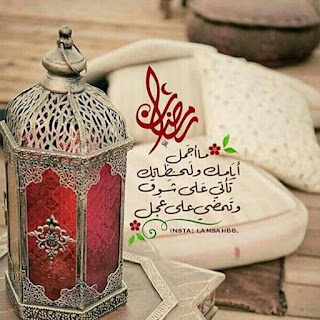 رمضان
ما أجمل
أيامك ولحظاتك
تأتي على شوق
وتمضي على عجل
INSTA: LAMSAHBB.